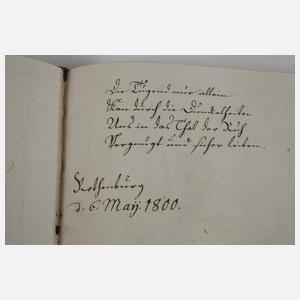 Die Tugend nur allein
Kan durch die Dunkelheiten
Uns in das Thal der Ruh
Vergnügt und sicher leiten.
Rothenburg
d. 6. Maÿ 1800.